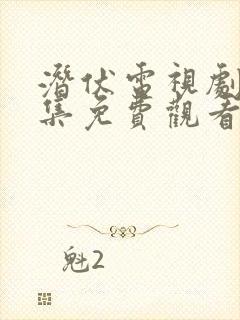 潛伏電視劇
集免費觀看
魁2